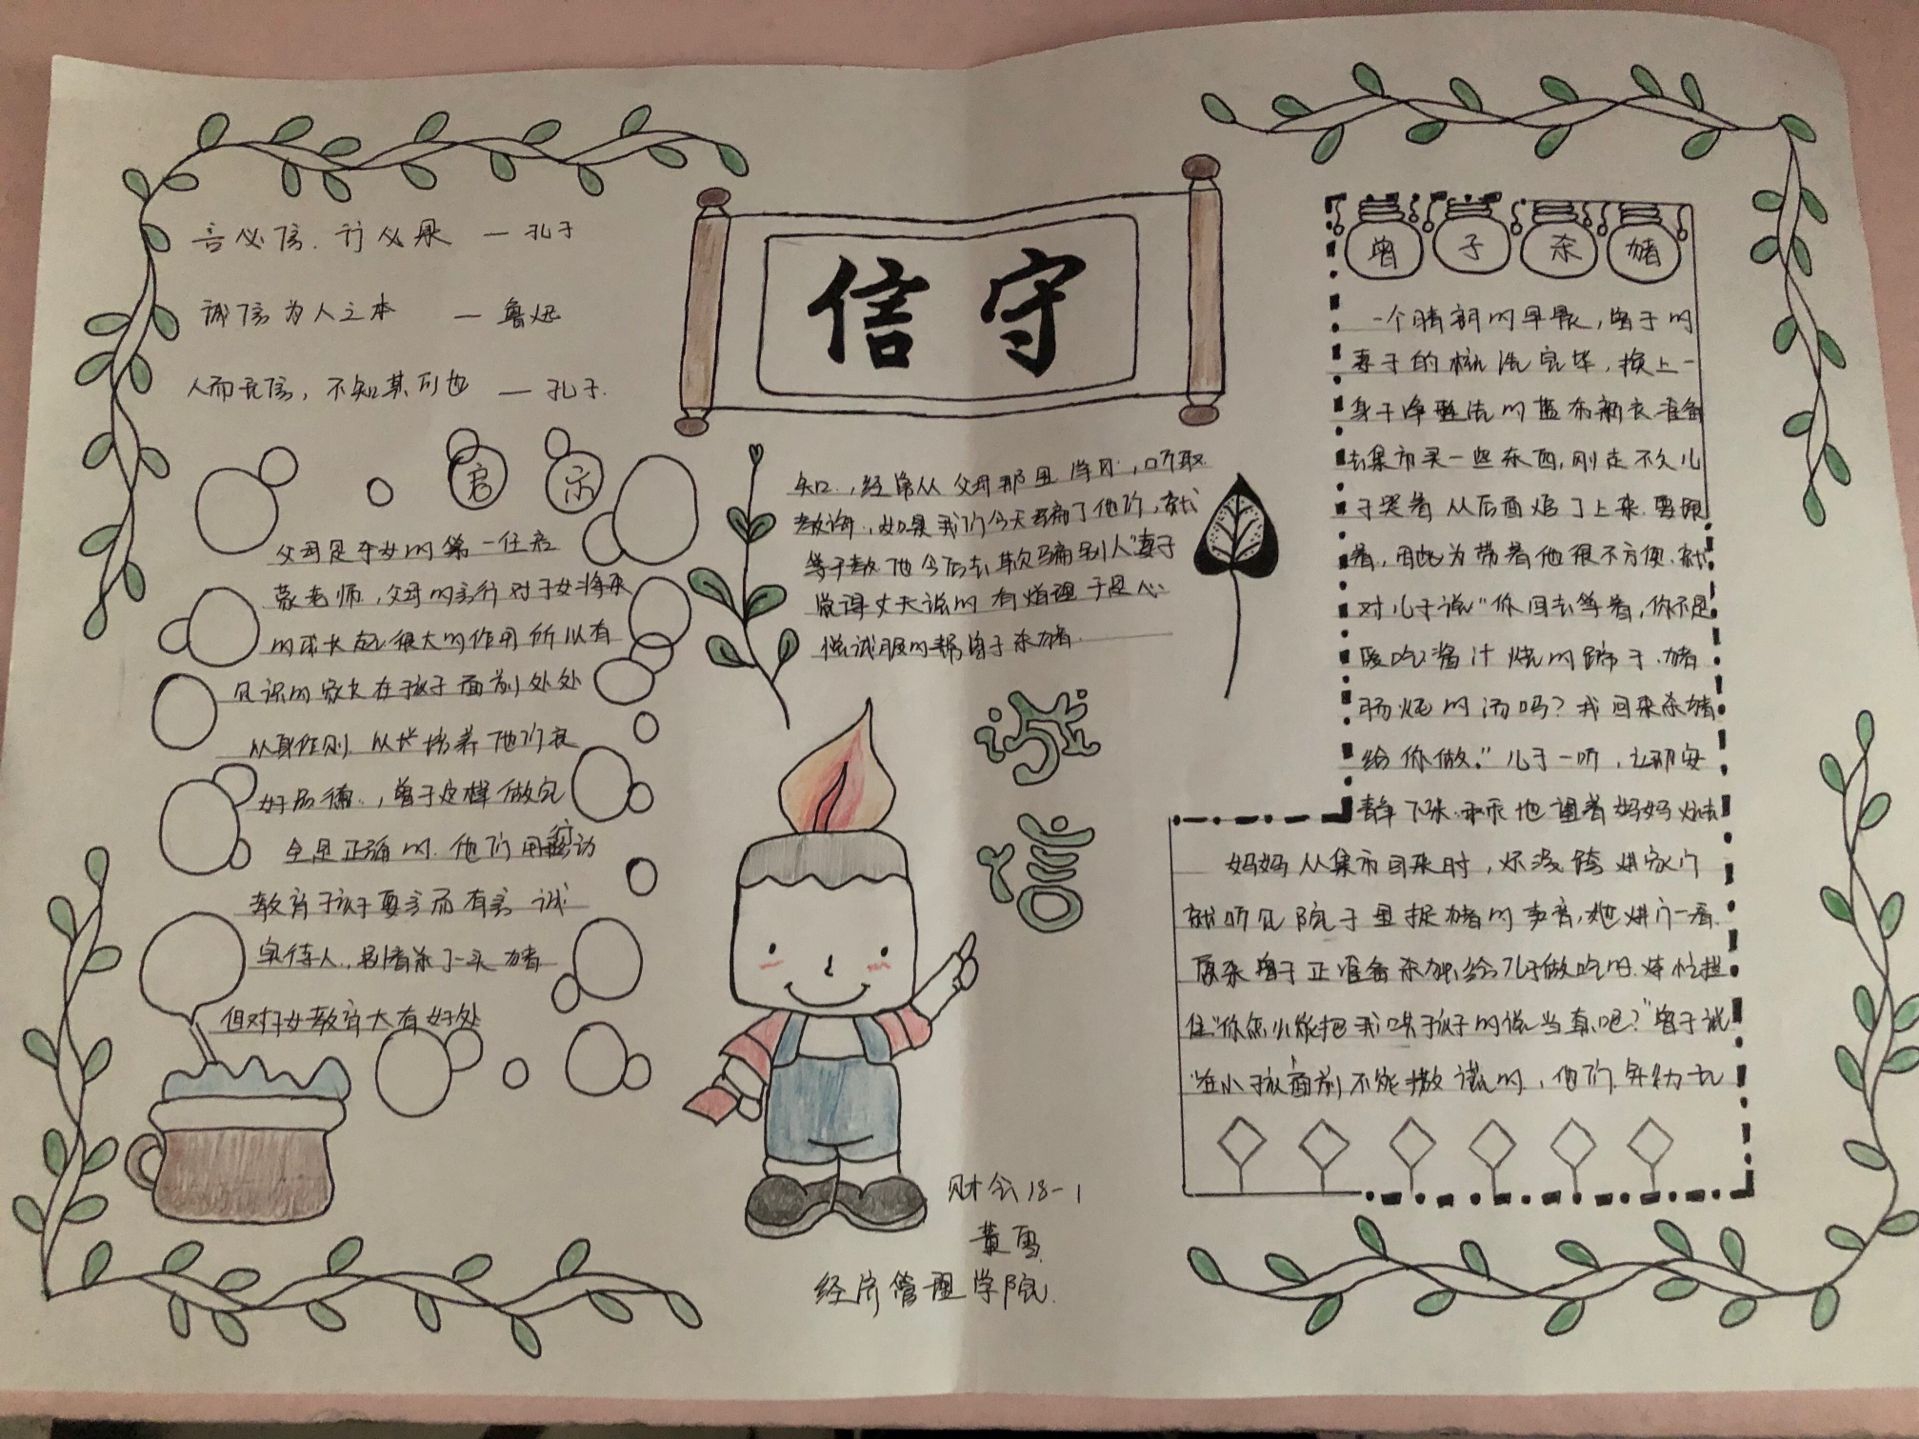 言必信，行必果 — 孔子
诚信为人之本 — 鲁迅
人而无信，不知其可也 — 孔子.
信守
启示
父母是子女的第一任启
蒙老师，父母的言行对子女将来
的成长起很大的作用所以有
见识的家长在孩子面前处处
从身作则 从长培养他们良
好品德.，曾子这样做完
全是正确的. 他们用行动
教育孩子要言而有言 诚
实待人.，别看杀了一头猪
但对子女教育大有好处
知.，经常从父母那里学习.，听取
教诲.，如果我们今天骗了他们，就
等于教他今后去欺骗别人"妻子
觉得丈夫说的有道理于是心
悦诚服的帮曾子杀猪.
诚信
财会18-1
黄雪.
经济管理学院.
曾子杀猪
一个晴朗的早晨，曾子的
妻子的梳洗完毕，换上一
身干净整洁的蓝布新衣准备
去集市买一些东西，刚走不久儿
子哭着从后面追了上来.要跟
着，因此为带着他很不方便.就
对儿子说"你回去等着，你不是
爱吃酱汁烧的蹄子.猪
肠炖的汤吗？我回来杀猪
给你做。"儿子一听，立即安
静下来.乖乖地望着妈妈
妈妈从集市回来时，还没跨进家门
就听见院子里捉猪的声音，她进门一看.
原来曾子正准备杀猪给儿子做吃的.
住"你怎么能把我哄孩子的说当真吧？"曾子说
"在小孩面前不能撒谎的，他们年幼无